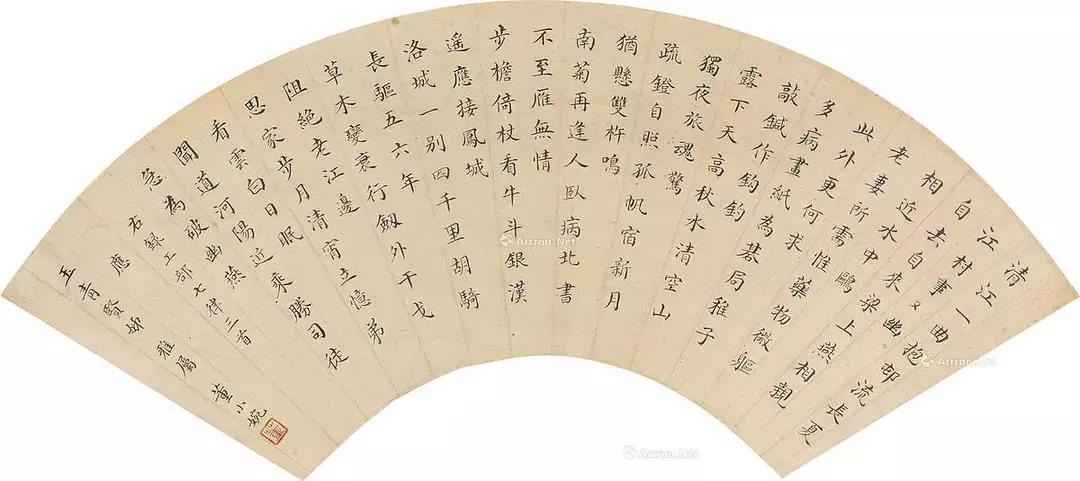 清江一曲抱邨流長夏
江村事〻幽
自去自來梁上燕相親
相近水中鷗
老妻所需惟藥物微軀
此外更何求
多病畫紙為棊局稚子
敲鍼作釣釣
露下天高秋水清空山
獨夜旅魂驚
疏鐙自照孤帆宿新月
猶懸雙杵鳴
南菊再逢人臥病北書
不至雁無情
步檐倚杖看牛斗銀漢
遙應接鳳城
洛城一別四千里胡騎
長驅五六年
草木變衰行劒外干戈
阻絕老江邊
思家步月清宵立憶弟
看雲白日眠
聞道河陽近乘勝司徒
急為破幽燕
右錄工部七律三首
應
玉青賢姊雅屬 董小婉
Artron.Net
Artron.Net
Artron.Net